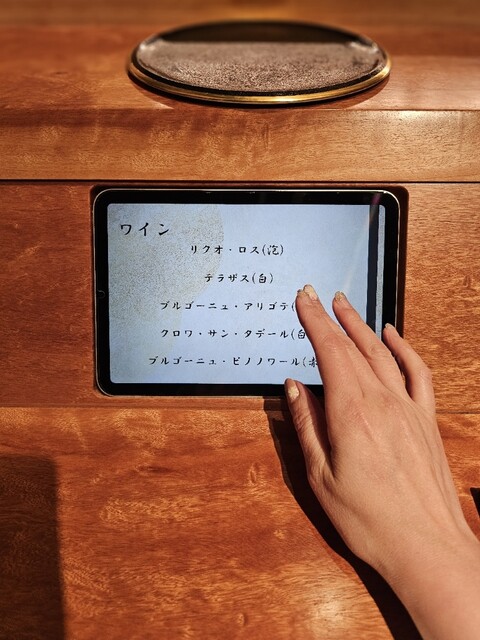 ワイン
リクオ・ロス(泡)
テラザス(白)
ブルゴーニュ・アリゴテ(
クロワ・サン・タデール(白
ブルゴーニュ・ピノノワール(赤